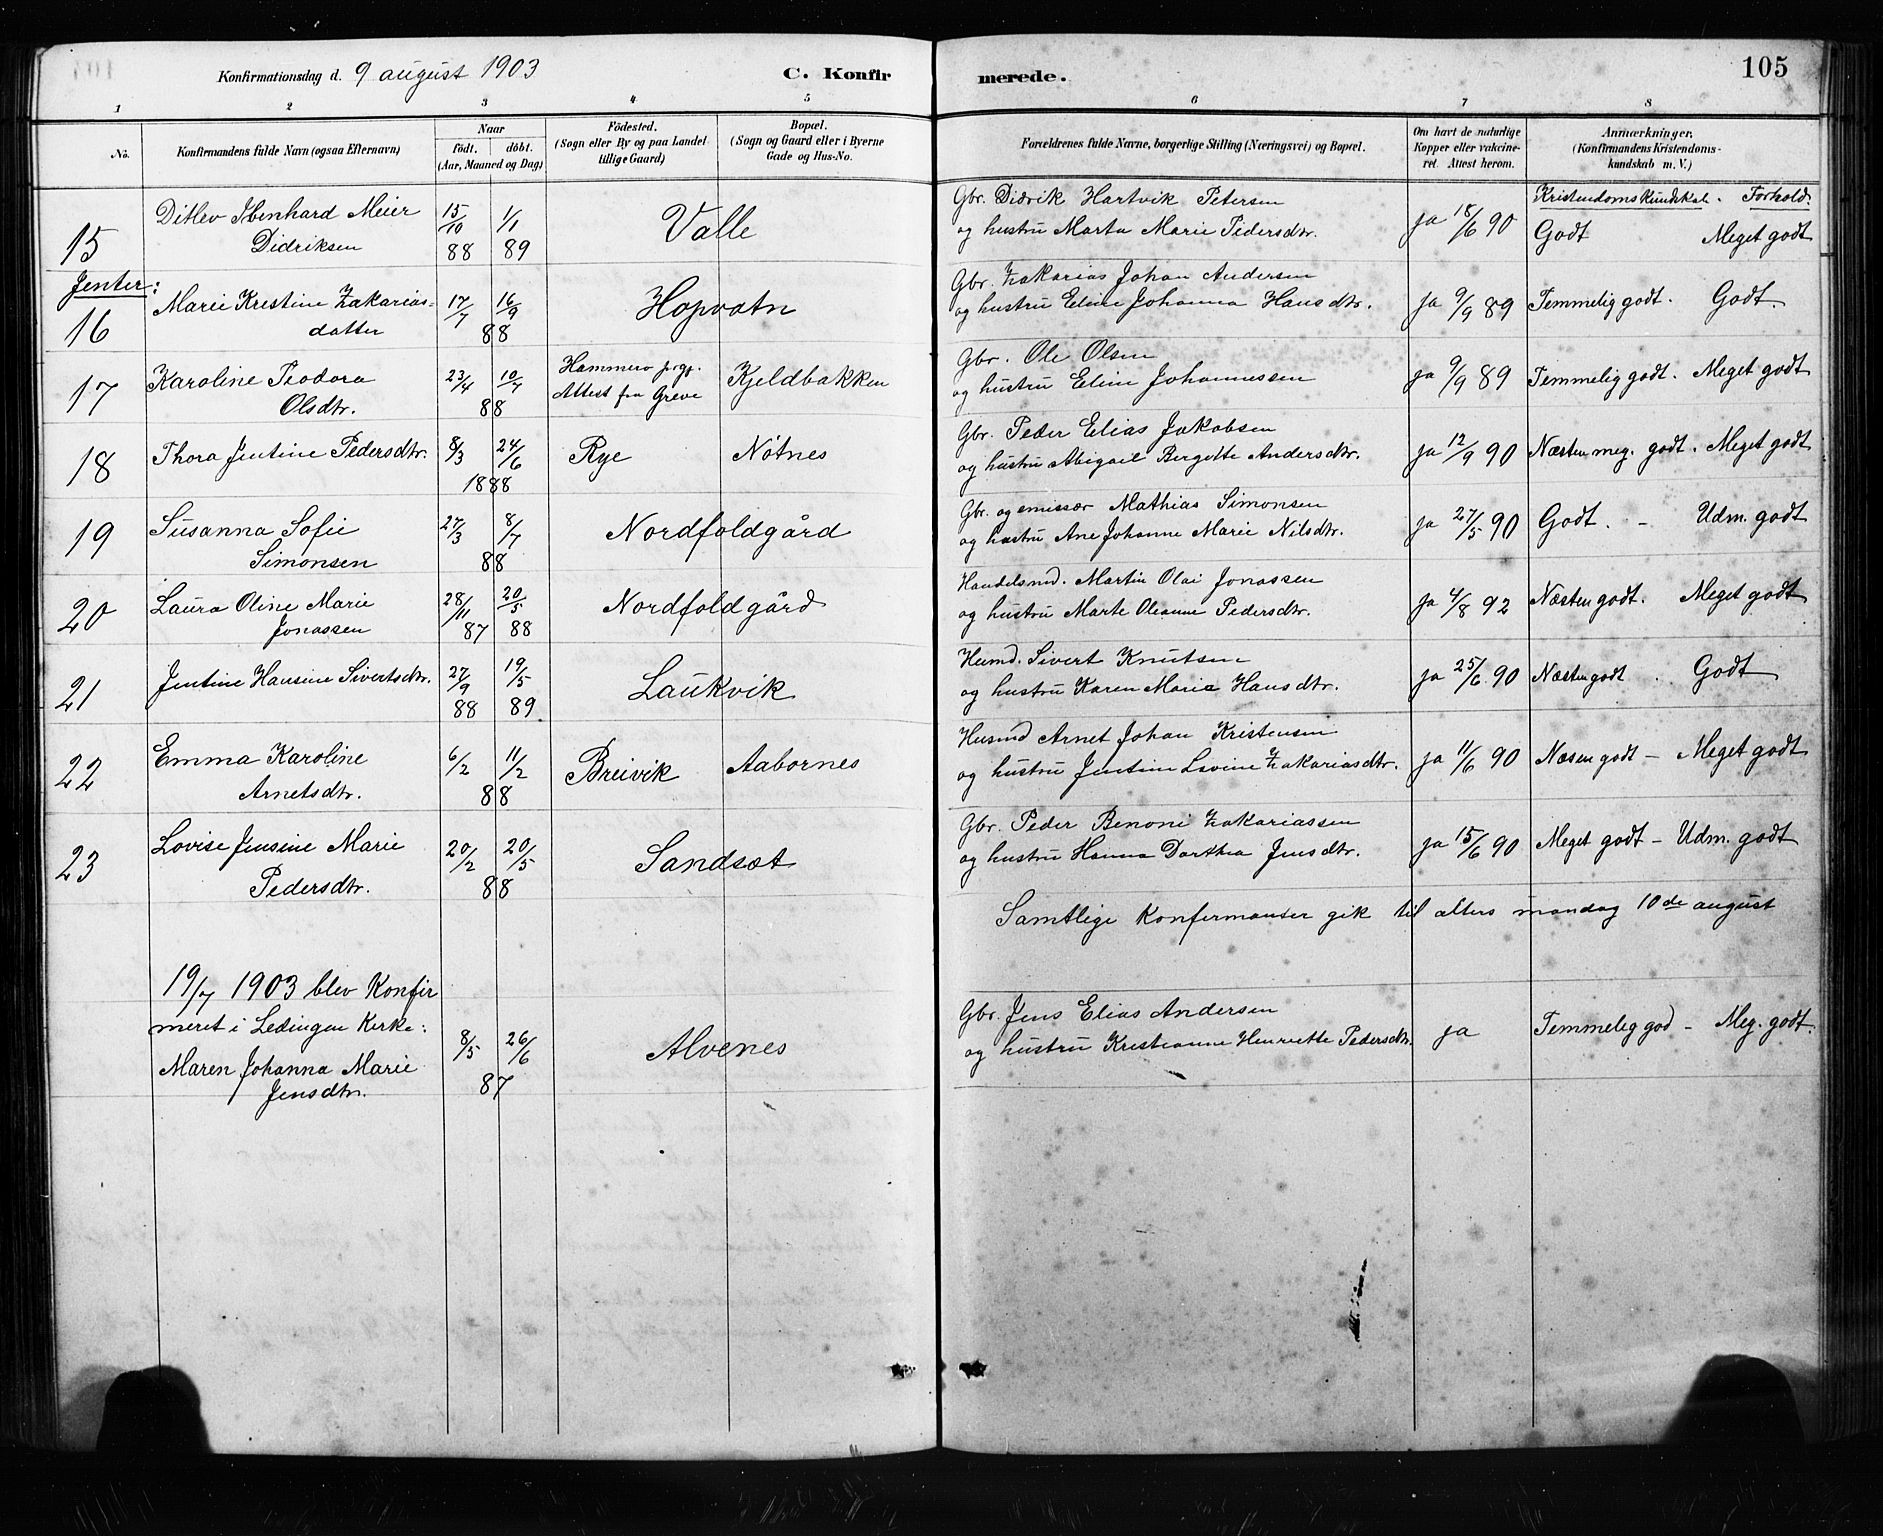 Konfirmationsdag d. 9 august 1903 C. Konfirmerede. 105
1 2 3 4 5 6 7 8
No. Konfirmandens fulde Navn (ogsaa Efternavn) Naar födt. döbt. (Aar, Maaned og Dag) Födested. (Sogn eller By og paa Landet tillige Gaard) Bopæl. (Sogn og Gaard eller i Byerne Gade og Hus-No.) Forældrenes fulde Navne, borgerlige Stilling (Næringsvei) og Bopæl. Om havt de naturlige Kopper eller vakcineret. Attest herom. Anmærkninger. (Konfirmandens Kristendomskundskab m. V.)
Kristendomskundskab. Forhold.
15 Ditlev Ibenhard Meier Didriksen 15/10 88 1/1 89 Valle
Gbr. Didrik Hartvik Petersen
og hustru Marta Marie Pedersdtr. ja 18/6 90 Godt Meget godt
Jenter:
16 Marie Kristine Zakariasdatter 17/7 16/9 88 Hopvatn
Gbr. Zakarias Johan Andersen
og hustru Eline Johanna Hansdtr. ja 9/9 89 Temmelig godt. Godt.
17 Karoline Teodora Olsdtr. 23/4 10/7 88 Hammerø prgj. Attest fra Greve Kjeldbakken
Gbr. Ole Olsen
og hustru Eline Johannessen ja 9/9 89 Temmelig godt. Meget godt
18 Thora Jentine Pedersdtr. 8/3 24/6 1888 Rye Nótnes
Gbr. Peder Elias Jakobsen
og hustru Abigael Bergitte Andersdtr. ja 12/9 90 Næsten meg. godt. Meget godt
19 Susanna Sofie Simonsen 27/3 8/7 88 Nordfoldgård
Gbr. og emissær Mathias Simonsen
og hustru Ane Johanne Marie Nilsdtr. ja 27/5 90 Godt. - Udm. godt
20 Laura Oline Marie Jonassen 28/11 87 20/5 88 Nordfoldgård
Handelsmd. Martin Olai Jonassen
og hustru Marte Oleanne Pedersdtr. ja 4/8 92 Næsten godt. Meget godt
21 Jentine Hansine Sivertsdtr. 27/9 88 19/5 89. Laukvik
Husmd. Sivert Knutsen
og hustru Karen Marie Hansdtr. ja 25/6 90 Næsten godt . Godt
22 Emma Karoline Arnetsdtr. 6/2 11/2 88 Breivik Aabornes
Husmd Arnet Johan Kristensen
og hustru Jentine Lovine Zakariasdtr. ja 11/6 90 Næsen godt - Meget godt
23 Lovise Jensine Marie Pedersdtr. 20/2 20/5 88 Sandsæt
Gbr. Peder Benoni Zakariassen
og hustru Hanna Dorthea Jensdtr. ja 15/6 90 Meget godt - Udm. godt
Samtlige Konfirmanter gik til alters mandag 10de august
19/7 1903 blev Konfir
meret i Ledingen Kirke:
Maren Johanna Marie
Jensdtr. 8/5 26/6 87 Alvenes
Gbr. Jens Elias Andersen
og hustru Kristianne Henriette Pedersdtr. ja Temmelig god - Meg. godt.